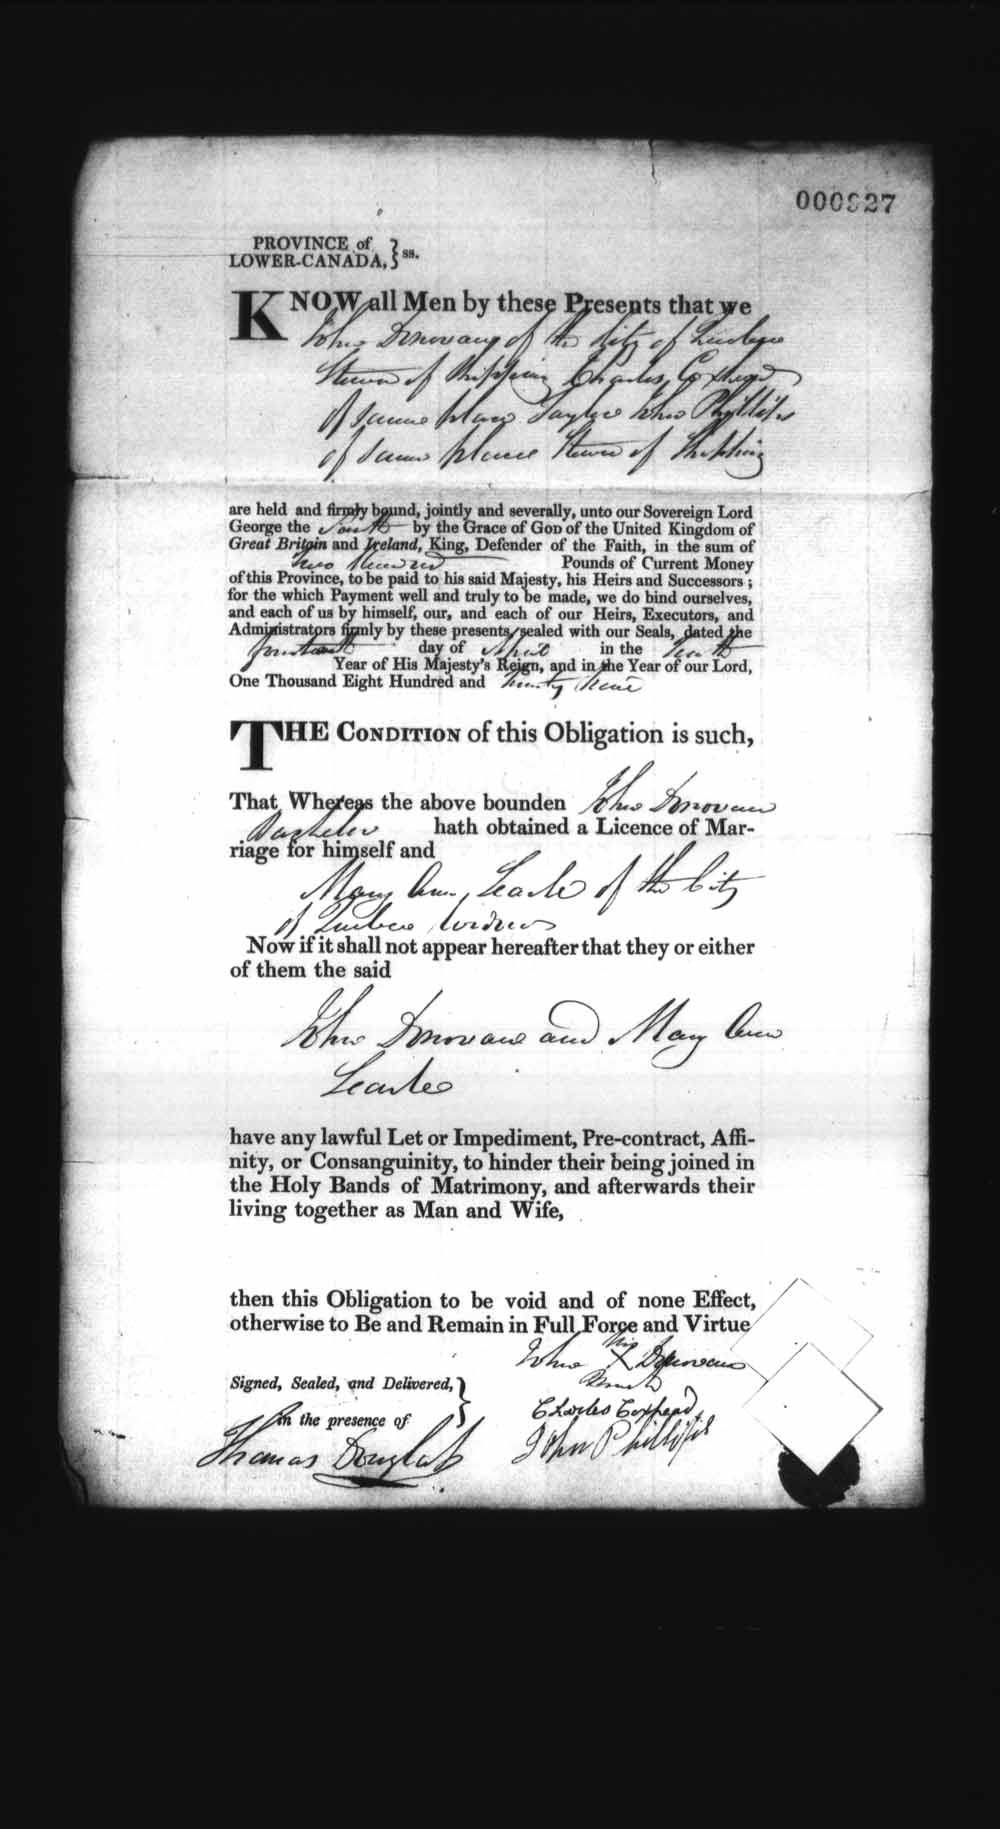 PROVINCE of
LOWER-CANADA, } ss.
KNOW all Men by these Presents that we
John Donovan of the City of Quebec
Steven of Shipping Charles Coxhead
of same place Taylor John Phillips
of same place Steven of Shipping
are held and firmly bound, jointly and severally, unto our Sovereign Lord
George the Fourth by the Grace of GOD of the United Kingdom of
Great Britain and Ireland, King, Defender of the Faith, in the sum of
Two Hundred Pounds of Current Money
of this Province, to be paid to his said Majesty, his Heirs and Successors ;
for the which Payment well and truly to be made, we do bind ourselves,
and each of us by himself, our, and each of our Heirs, Executors, and
Administrators firmly by these presents, sealed with our Seals, dated the
day of April in the Tenth
Year of His Majesty's Reign, and in the Year of our Lord,
One Thousand Eight Hundred and Twenty Nine
THE CONDITION of this Obligation is such,
That Whereas the above bounden John Donovan
Bachelor hath obtained a Licence of Mar-
riage for himself and
Mary Ann Searle of the City
of Quebec Widow
Now if it shall not appear hereafter that they or either
of them the said
John Donovan and Mary Ann
Searle
have any lawful Let or Impediment, Pre-contract, Affi-
nity, or Consanguinity, to hinder their being joined in
the Holy Bands of Matrimony, and afterwards their
living together as Man and Wife,
then this Obligation to be void and of none Effect,
otherwise to Be and Remain in Full Force and Virtue
John his X Donovan
mark
Signed, Sealed, and Delivered, }
Charles Coxhead
in the presence of
John Phillips
Thomas Douglas